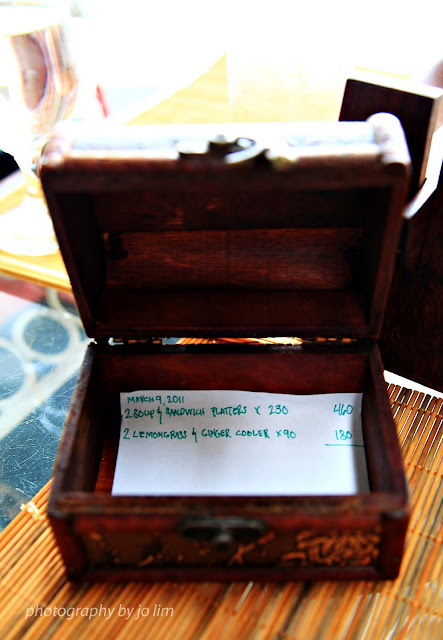 MARCH 9, 2011
2 SOUP & SANDWICH PLATTERS x 230 460
2 LEMONGRASS & GINGER COOLER x 90 180
photography by jo lim